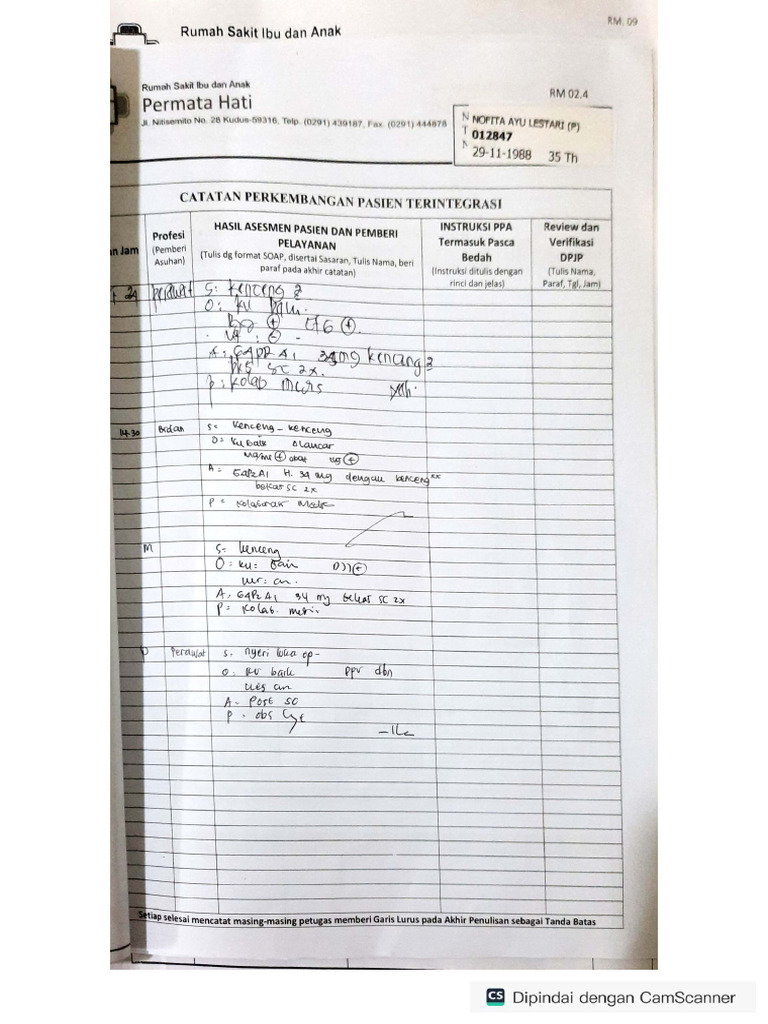 RM. 09
Rumah Sakit Ibu dan Anak
Rumah Sakit Ibu dan Anak
Permata Hati
Jl. Nitisemito No. 28 Kudus-59316, Telp. (0291) 439187, Fax. (0291) 444876
RM 02.4
N NOFITA AYU LESTARI (P)
T 012847
A 29-11-1988 35 Th
CATATAN PERKEMBANGAN PASIEN TERINTEGRASI
n Jam
Profesi
(Pemberi
Asuhan)
HASIL ASESMEN PASIEN DAN PEMBERI
PELAYANAN
(Tulis dg format SOAP, disertai Sasaran, Tulis Nama, beri
paraf pada akhir catatan)
INSTRUKSI PPA
Termasuk Pasca
Bedah
(Instruksi ditulis dengan
rinci dan jelas)
Review dan
Verifikasi
DPJP
(Tulis Nama,
Paraf, Tgl, Jam)
24 perawat S: kenceng 2
O: KU
⊕ ⊕
: ⊖
A: G4P2A1 34 mg kencang 2
SC 2x.
P: kolab
14.30 Bidan S= kenceng - kenceng
O= KU baik DJ lancar
⊕ obat ⊕
A= G4P2A1 H. 34 mg dengan kenceng"
bekas SC 2x
P=
M S= kenceng
O: KU= Bain DJJ ⊕
A: G4P2A1 34 mg bekas SC 2x
P= Kolab.
P Perawat S. nyeri luka op-
O: KU baik PPV dbn
A- Post SC
P- obs
Setiap selesai mencatat masing-masing petugas memberi Garis Lurus pada Akhir Penulisan sebagai Tanda Batas
CS Dipindai dengan CamScanner